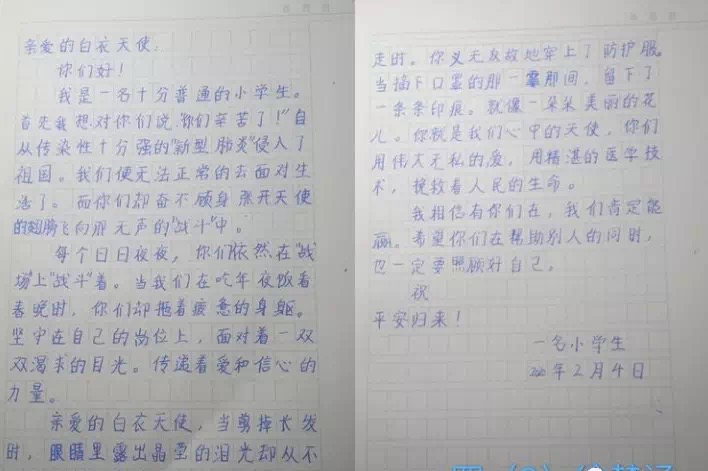 亲爱的白衣天使:
你们好!
我是一名十分普通的小学生。
首先我想对你们说"你们辛苦了!"自
从传染性十分强的"新型肺炎"侵入了
祖国。我们便无法正常的去面对生
活了。而你们却奋不顾身张开天使
的翅膀飞向那无声的"战斗"中。
每个日日夜夜,你们依然在"战
场"上"战斗"着。当我们在吃年夜饭看
春晚时,你们却拖着疲惫的身躯。
坚守在自己的岗位上,面对着一双
双渴求的目光。传递着爱和信心的
力量。
亲爱的白衣天使,当剪掉长发
时,眼睛里露出晶莹的泪光却从不
走时。你义无反故地穿上了防护服。
当摘下口罩的那一霎那间,留下了
一条条印痕。就像一朵朵美丽的花
儿。你就是我们心中的天使,你们
用伟大无私的爱,用精湛的医学技
术,挽救着人民的生命。
我相信有你们在,我们肯定能
赢。希望你们在帮助别人的同时,
也一定要照顾好自己。
祝
平安归来!
一名小学生
2020年2月4日